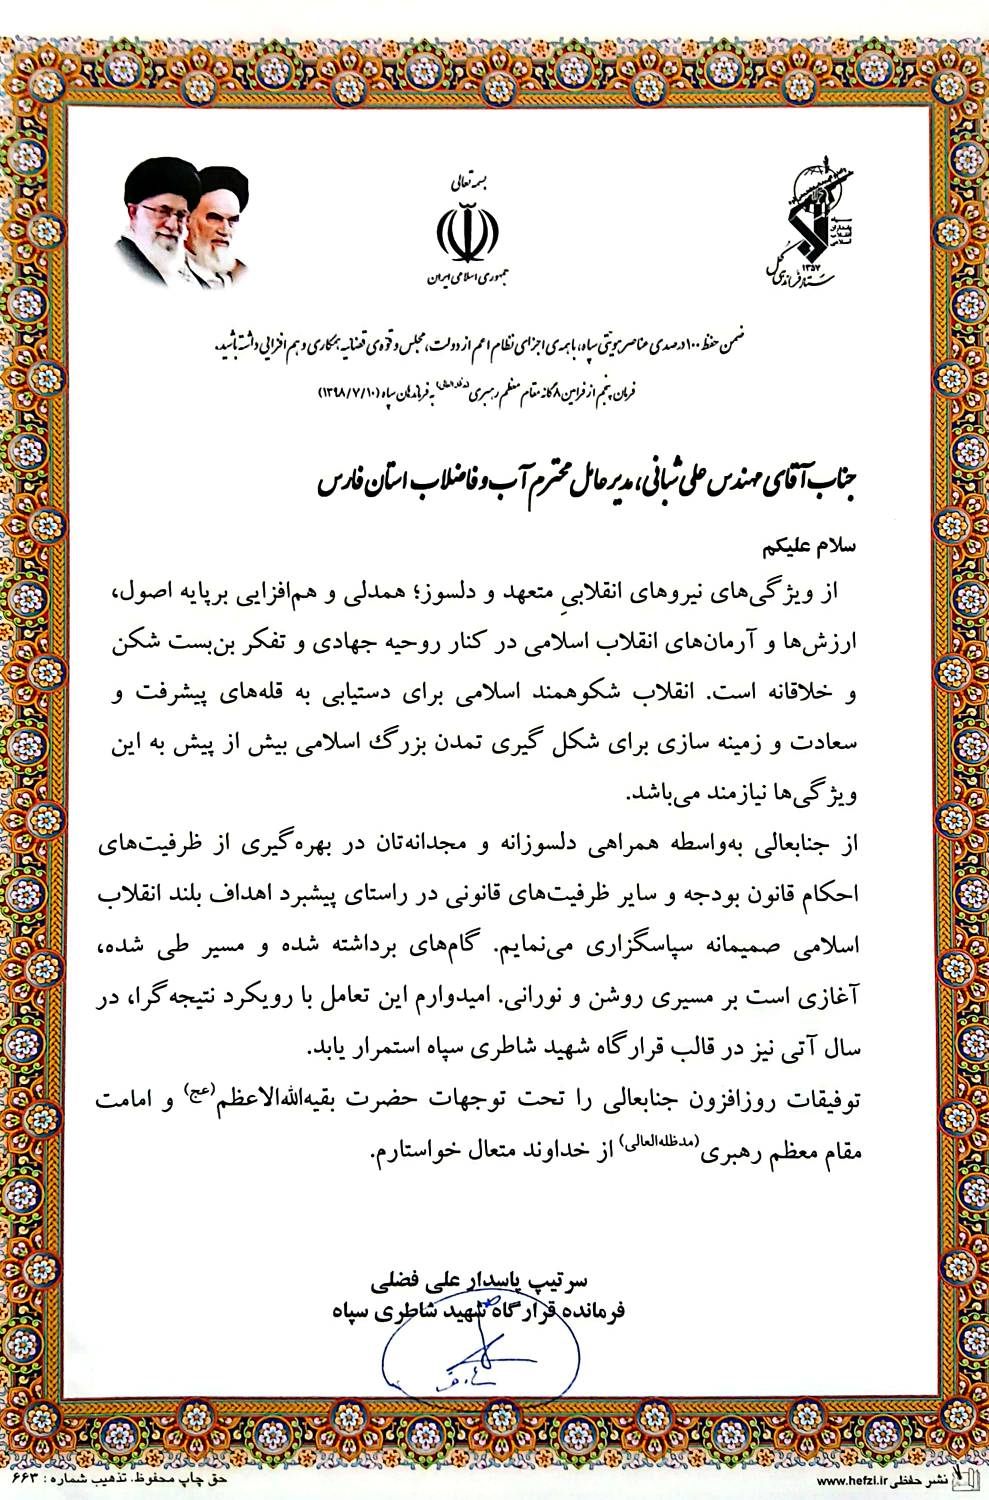 بسمه تعالی
جمهوری اسلامی ایران
سپاه
پاسداران
انقلاب
اسلامی
۱۳۵۷
ستاد فرماندهی کل
ضمن حفظ ۱۰۰ درصدی عناصر هویتی سپاه، با همه‌ی اجزای نظام اعم از دولت، مجلس و قوه‌ی قضائیه همکاری و هم افزایی داشته باشید.
فرمان پنجم از فرامین ۸ گانه مقام معظم رهبری (مدظله العالی) به فرماندهان سپاه (۱۳۹۸/۷/۱۰)
جناب آقای مهندس علی شبانی، مدیرعامل محترم آب و فاضلاب استان فارس
سلام علیکم
از ویژگی‌های نیروهای انقلابیِ متعهد و دلسوز؛ همدلی و هم‌افزایی برپایه اصول،
ارزش‌ها و آرمان‌های انقلاب اسلامی در کنار روحیه جهادی و تفکر بن‌بست شکن
و خلاقانه است. انقلاب شکوهمند اسلامی برای دستیابی به قله‌های پیشرفت و
سعادت و زمینه سازی برای شکل گیری تمدن بزرگ اسلامی بیش از پیش به این
ویژگی‌ها نیازمند می‌باشد.
از جنابعالی به‌واسطه همراهی دلسوزانه و مجدانه‌تان در بهره‌گیری از ظرفیت‌های
احکام قانون بودجه و سایر ظرفیت‌های قانونی در راستای پیشبرد اهداف بلند انقلاب
اسلامی صمیمانه سپاسگزاری می‌نمایم. گام‌های برداشته شده و مسیر طی شده،
آغازی است بر مسیری روشن و نورانی. امیدوارم این تعامل با رویکرد نتیجه‌گرا، در
سال آتی نیز در قالب قرارگاه شهید شاطری سپاه استمرار یابد.
توفیقات روزافزون جنابعالی را تحت توجهات حضرت بقیه‌الله‌الاعظم(عج) و امامت
مقام معظم رهبری(مدظله‌العالی) از خداوند متعال خواستارم.
سرتیپ پاسدار علی فضلی
فرمانده قرارگاه شهید شاطری سپاه
نشر حفظی www.hefzi.ir
حق چاپ محفوظ. تذهیب شماره : ۶۶۳